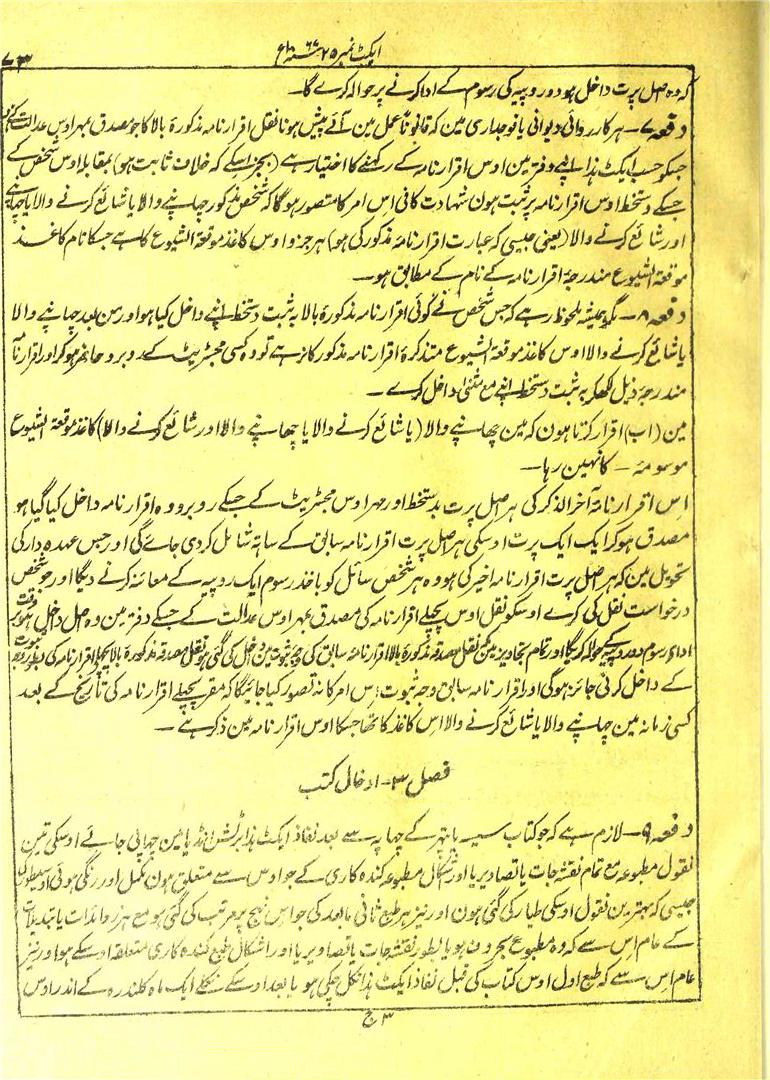 ایکٹ نمبر ۲۵ سنہ ۱۸۶۷ع
۷۳
کہ وہ اصل پرت داخل ہو دو روپیہ کی رسوم کے ادا کرنے پر حوالہ کرے گا۔
دفعہ ۷۔ ہر کارروائی دیوانی یا فوجداری مین کہ قانوناً عمل مین آئے پیش ہونا نقل اقرارنامہ مذکورۂ بالا کا جو مصدق بمہر اوس عدالت کے ہو
جسکو حسب ایکٹ ہذا اپنے دفتر مین اوس اقرارنامہ کے رکھنے کا اختیار ہے (بجز اسکے کہ خلاف ثابت ہو) بمقابلہ اوس شخص کے
جسکے دستخط اوس اقرارنامہ پر ثبت ہون شہادت کافی اس امر کا متصور ہوگا کہ شخص مذکور چھاپنے والا یا شائع کرنے والا یا چھاپنے
اور شائع کرنے والا (یعنی جیسی کہ عبارت اقرارنامۂ مذکور کی ہو) ہر جزو اوس کاغذ موقتۃ الشیوع کا ہے جسکا نام کاغذ
موقتۃ الشیوع مندرجۂ اقرارنامہ کے نام کے مطابق ہو۔
دفعہ ۸۔ مگر ہمیشہ ملحوظ رہے کہ جس شخص نے کوئی اقرارنامہ مذکورۂ بالا بہ ثبت دستخط اپنے داخل کیا ہو اور من بعد چھاپنے والا
یا شائع کرنے والا اوس کاغذ موقتۃ الشیوع متذکرۂ اقرارنامہ مذکور کا نرہے تو وہ کسی مجسٹریٹ کے روبرو حاضر ہوکر اور اقرارنامہ
مندرجۂ ذیل لکھکر بہ ثبت دستخط اپنے مع مثنیٰ داخل کرے۔
مین (اب) اقرار کرتا ہون کہ مین چھاپنے والا (یا شائع کرنے والا یا چھاپنے والا اور شائع کرنے والا) کاغذ موقتۃ الشیوع
موسومہ — کا نہین رہا۔
اس اقرارنامۂ آخر الذکر کی ہر اصل پرت بدستخط اور مہر اوس مجسٹریٹ کے جسکے روبرو وہ اقرارنامہ داخل کیا گیا ہو
مصدق ہوکر ایک ایک پرت اوسکی ہر اصل پرت اقرارنامہ سابق کے ساتھ شامل کردی جائے گی اور جس عہدہ دار کی
تحویل مین کہ ہر اصل پرت اقرارنامہ اخیر کی ہو وہ ہر شخص سائل کو باخذ رسوم ایک روپیہ کے معائنہ کرنے دیگا اور جو شخص
درخواست نقل کی کرے اوسکو نقل اوس پچھلے اقرارنامہ کی مصدق بمہر اوس عدالت کے جسکے دفتر مین وہ اصل داخل ہو بروقت
ادائے رسوم دو روپیہ کے حوالہ کریگا اور تمام تجاویز مین جنمین نقل مصدقہ مذکورۂ بالا اقرارنامہ سابق کی وجہ ثبوت مین داخل کی گئی ہو نقل مصدقہ مذکورۂ بالا پچھلے اقرارنامہ کی بطور وجہ ثبوت
کے داخل کرنی جائز ہوگی اور اقرارنامہ سابق وجہ ثبوت اس امر کا نہ تصور کیا جائیگا کہ مقر پچھلے اقرارنامہ کی تاریخ کے بعد
کسی زمانہ مین چھاپنے والا یا شائع کرنے والا اس کاغذ کا تھا جسکا اوس اقرارنامہ مین ذکر ہے۔
فصل ۳۔ ادخال کتب
دفعہ ۹۔ لازم ہے کہ جو کتاب سیسہ یا پتھر کے چھاپہ سے بعد نفاذ ایکٹ ہذا برٹش انڈیا مین چھاپی جائے اوسکی تین
نقول مطبوعہ مع تمام نقشہ جات یا تصاویر یا اور اشکال مطبوعہ کندہ کاری کے جو اوس سے متعلق ہون مکمل اور رنگی ہوئی اوسیطور کی
جیسی کہ بہترین نقول اوسکی طیار کی گئی ہون اور نیز ہر طبع ثانی مابعد کی جو اس نہج پر مرتب کی گئی ہو مع ہر زوائدات یا تبدیلات
کے عام اس سے کہ وہ مطبوع بحروف ہو یا بطور نقشہ جات یا تصاویر یا اور اشکال طبع کندہ کاری متعلقہ اوسکے ہو اور نیز
عام اس سے کہ طبع اول اوس کتاب کی قبل نفاذ ایکٹ ہذا نکل چکی ہو یا بعد اوسکے نکلے ایک ماہ کلنڈرہ کے اندر اوس
۳ ج